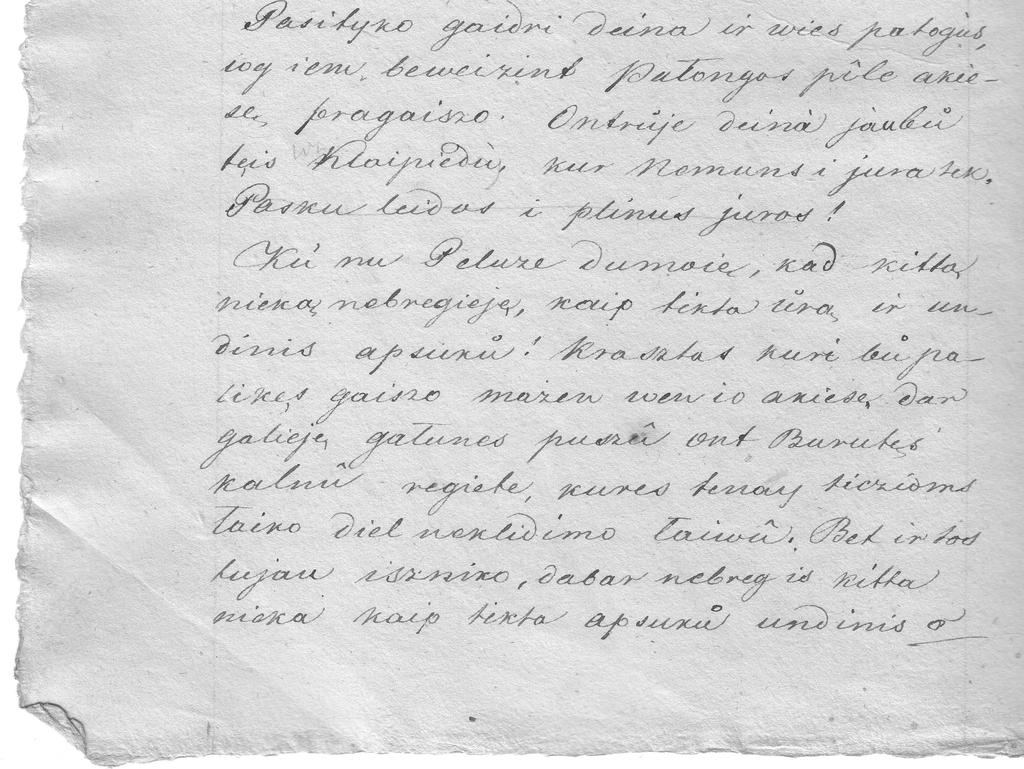 Pasityko gaidri deina ir wies patogus,
iog iem, beweizint Pałongos pîle akie-
se, pragaiszo. Ontrůje deinà jaubů
tęis Kłaipiedů, kur Nemuns i jura tek.
Pasku leidos i plinus juros!
Ků nu Peluze dumoię, kad kittą
nieką nebregieję, kaip tikta ůrą ir un-
dinis apsuků! Krasztas kuri bů pa-
likęs gaiszo mażen wen io akiesę, dar
galieję gałunes puszû ont Burutęs
kalnû regiete, kures tenay ticzioms
łaiko diel neklidimo łaiwû. Bet ir tos
tujau iszniko, dabar nebregis kitta
nieka kaip tikta apsuků undinis o